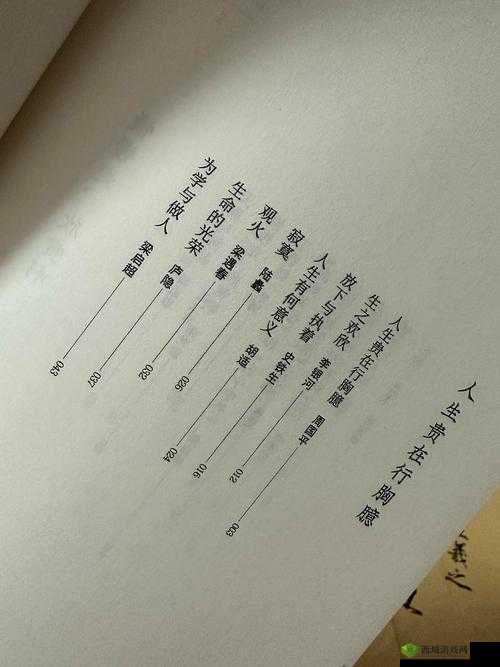 人生贵在行胸臆
人生贵在行胸臆 周国平 003
生之欢欣 李银河 012
放下与执着 史铁生 016
人生有何意义 胡适 024
寂寞 陆蠡 026
观火 梁遇春 032
生命的光荣 庐隐 037
为学与做人 梁启超 043
羲之
西域游戏网